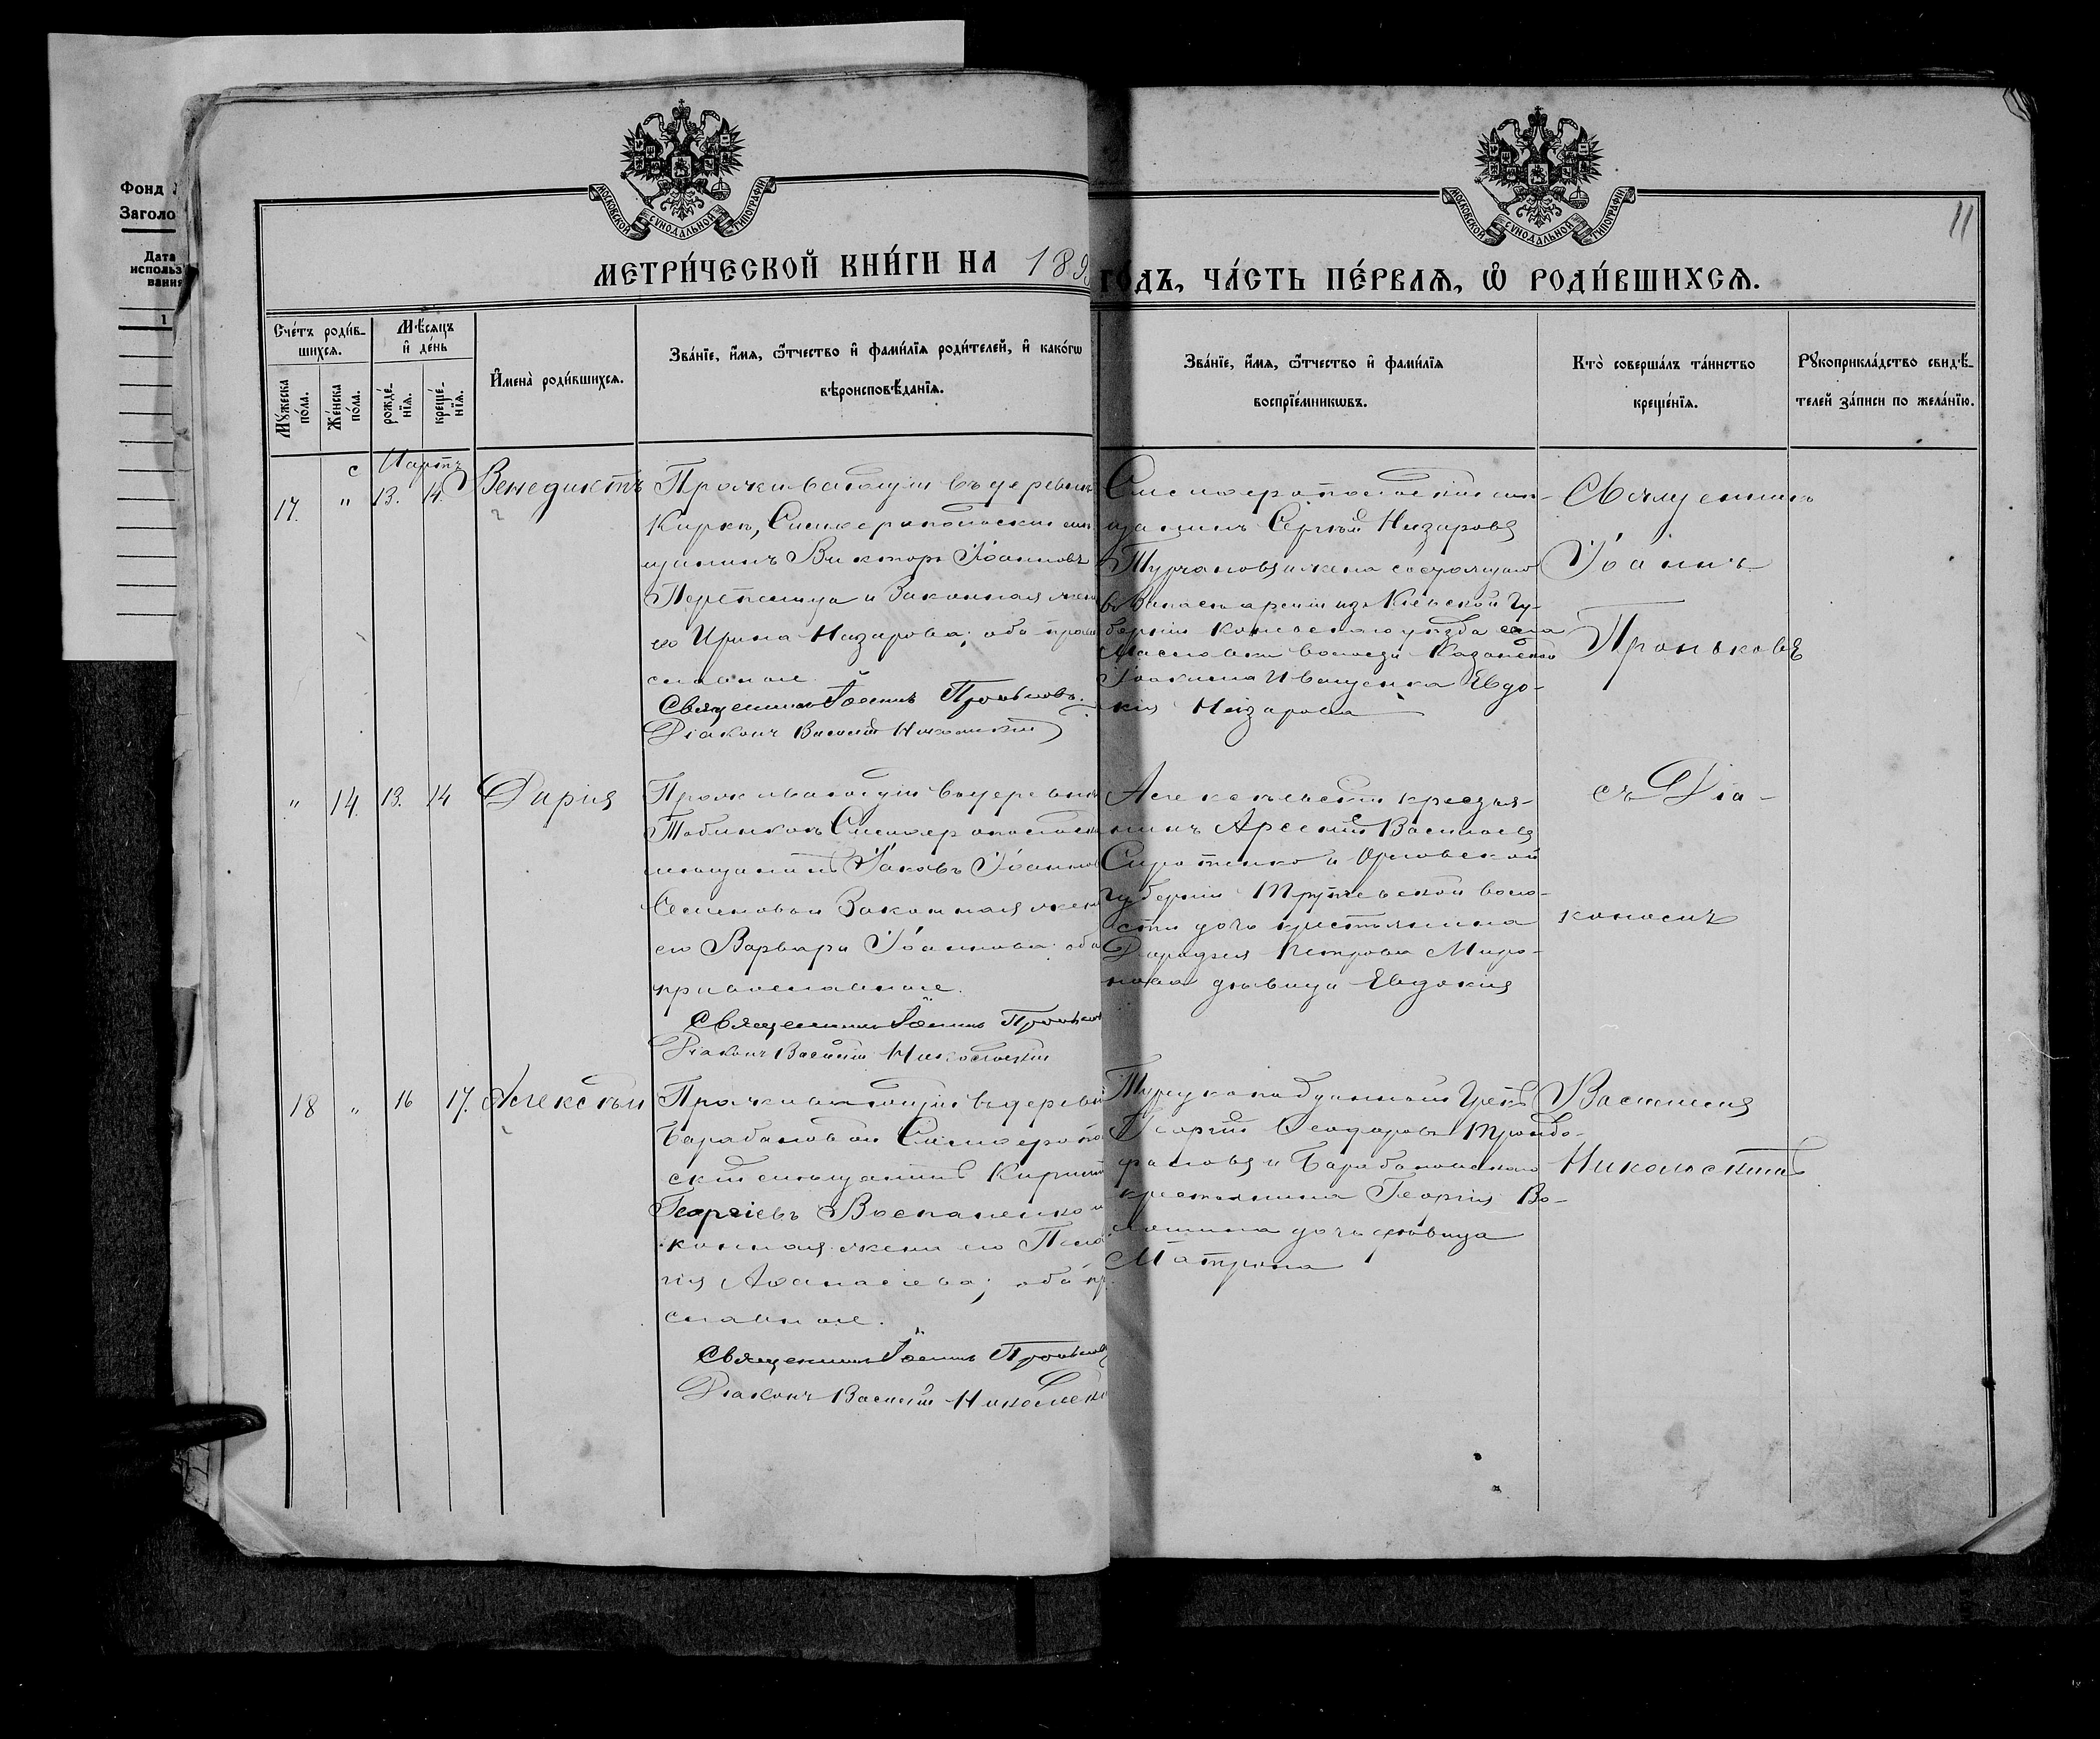 Фонд
Заголо
Дата
использ
вания
1
МОСКОВСКОЙ СѴНОДАЛЬНОЙ ТИПОГРАФІИ
МОСКОВСКОЙ СѴНОДАЛЬНОЙ ТИПОГРАФІИ
11
МЕТРИ́ЧЕСКОЙ КНИ́ГИ НА 189
ГО́ДЪ, ЧА́СТЬ ПЕ́РВАѦ, Ѡ҆ РОДИ́ВШИХСѦ.
Сче́тъ роди́в-
шихсѧ.
Мѣ́сѧцъ
и҆ де́нь
Мꙋ́жеска
по́ла.
Же́нска
по́ла.
рожде́-
нїѧ.
креще́-
нїѧ.
И҆мена̀ роди́вшихсѧ.
Зва́нїе, и҆́мѧ, ѻ҆́тчество и҆ фами́лїѧ роди́телей, и҆ како́гѡ
вѣроисповѣ́данїѧ.
Зва́нїе, и҆́мѧ, ѻ҆́тчество и҆ фами́лїѧ
воспрїе́мникѡвъ.
Кто̀ соверша́лъ та́инство
креще́нїѧ.
Рꙋкоприкла́дство свидѣ́-
телей за́писи по жела́нїю.
Мартъ
17. " 13. 14. Венедиктъ
Проживающій въ деревнѣ
Кирки, Симферопольскій мѣ
щанинъ Викторъ Іоанновъ
и Законная жен
его Ирина Назарова; оба право
славные.
Священникъ Іоаннъ Проньковъ.
Діаконъ Василій Никольскій
Симферопольскій мѣ-
щанинъ Сергѣй Назаровъ
и жена состоящаго
въ Запас арміи изъ Кіевской Гу-
берніи уѣзда села
Масловки волости
Іоакима Иващенка Евдо-
кія Назарова
Священникъ
Іоаннъ
Проньковъ
" 14. 13. 14 Дарія
Проживающій въ деревнѣ
Симферопольскі
мѣщанинъ Іаковъ Іоаннов
Семеновъ и Законная жен
его Варвара Іоаннова; оба
православные.
Священникъ Іоаннъ Проньков
Діаконъ Василій Никольскій
крестья-
нинъ Арсеній Васильевъ
Сиротенко и Орловской
губерніи воло-
сти дочь крестьянина
Петрова Миро-
нова дѣвица Евдокія
съ Діа-
кономъ
18 " 16 17. Алексѣй
Проживающій въ деревнѣ
Барабановой Симферопо
скій мѣщанинъ Кирилл
Георгіевъ и
конная жена его Пела
гія Аѳанасіева; оба пр
славные.
Священникъ Іоаннъ Проньков
Діаконъ Василій Никольскі
Турецкоподданный Грекъ
Георгій Ѳеодоровъ
и Барабановскаго
крестьянина Георгія Во-
лошина дочь дѣвица
Матрона
Василіемъ
Никольскимъ